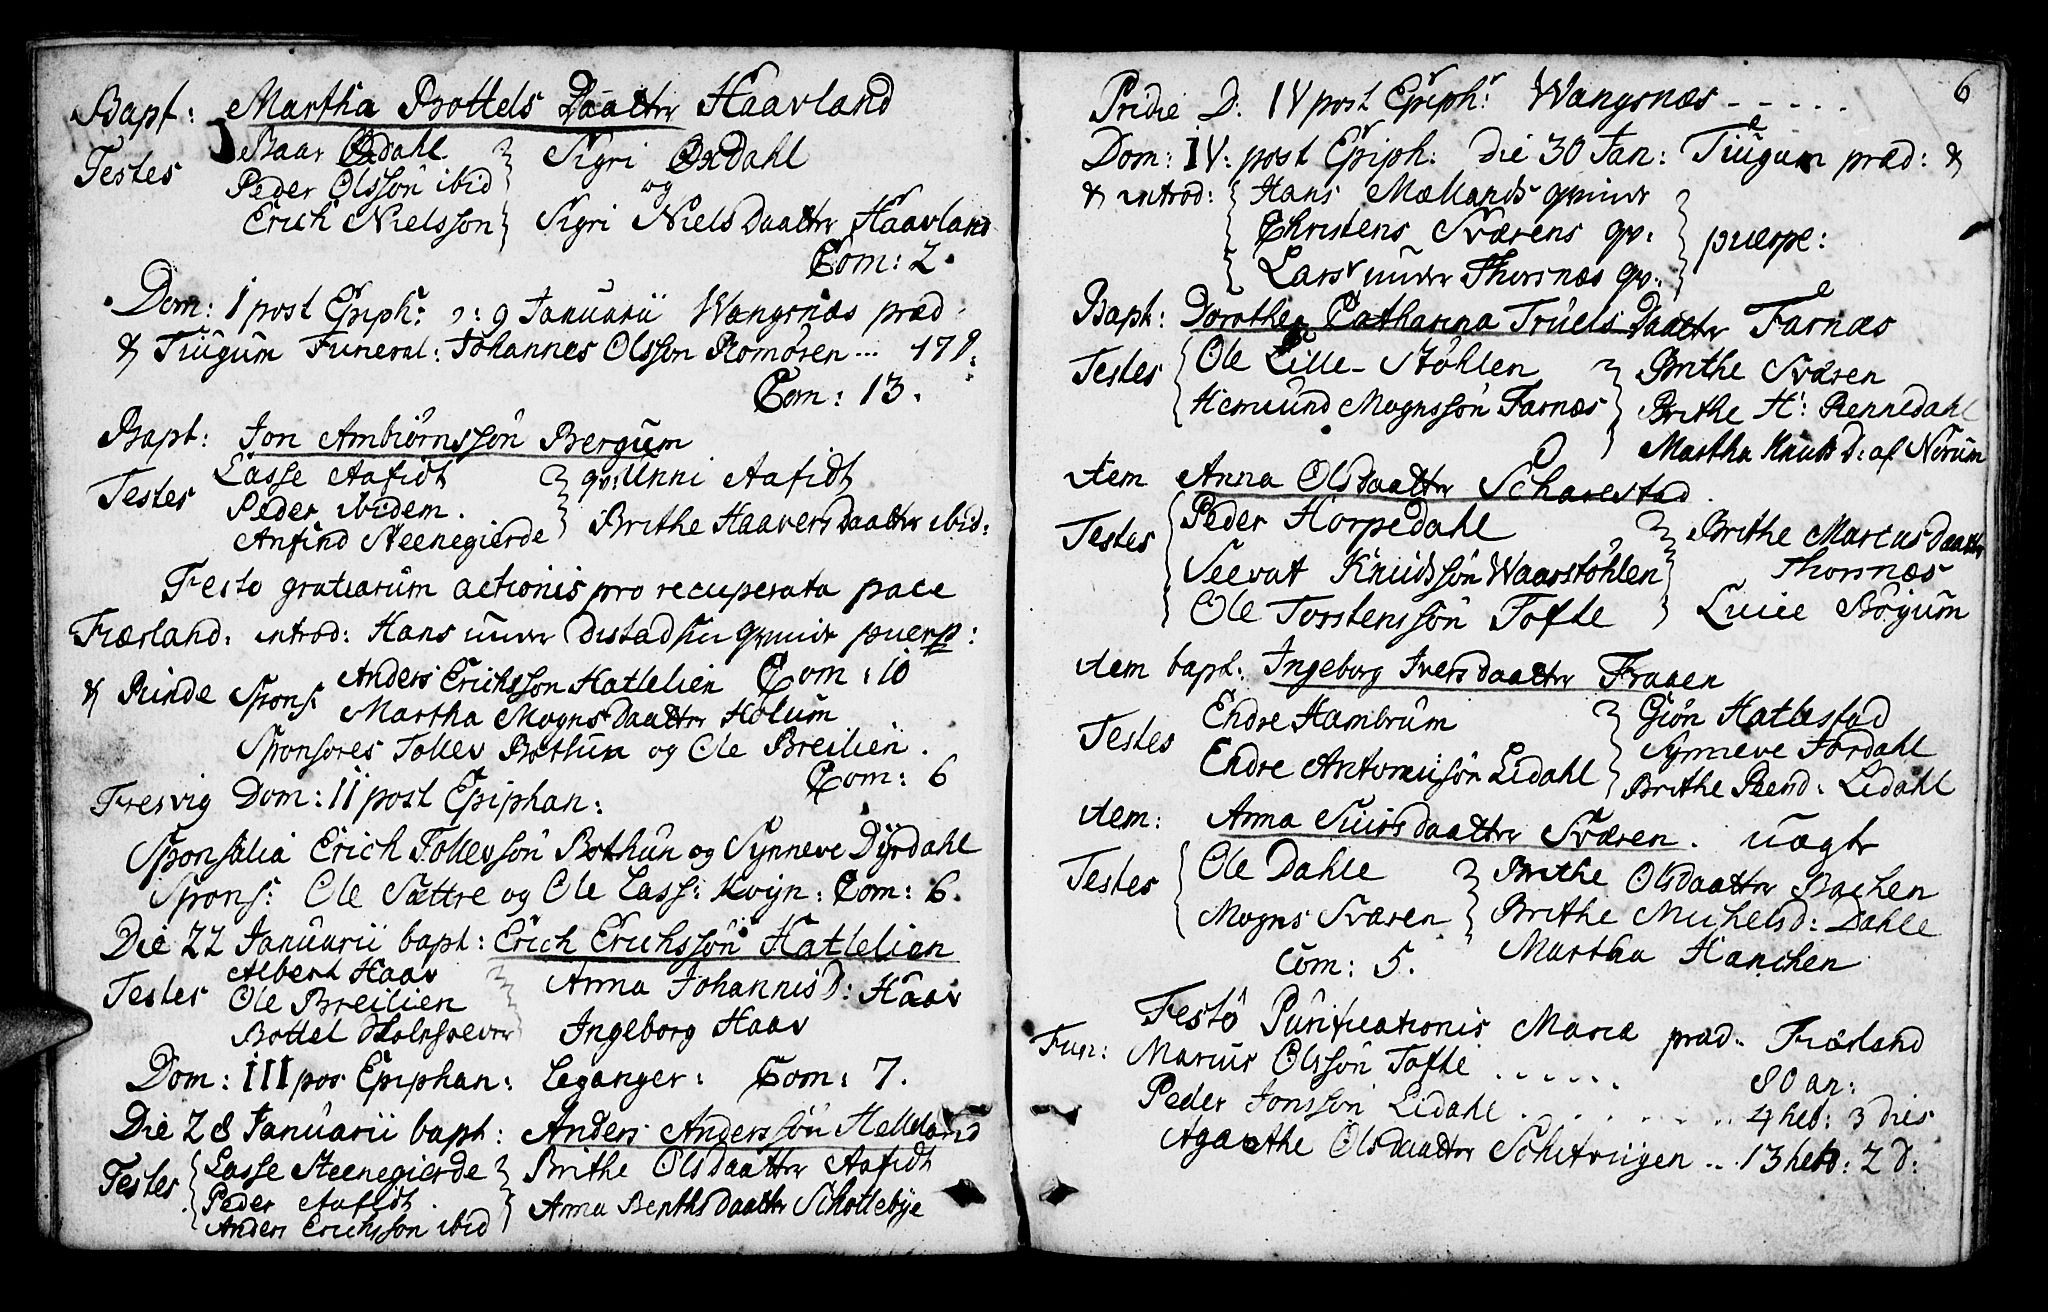 Bapt: Martha Bottels Daatter Haavland
Testes Baar Oxdahl } Sigri Oxdahl
Peder Olsson ibid og
Erich Nielsson Sigri Niels Daatter Haavland
Com: 2.
Dom: 1 post Epiph: ɔ: 9 Januarii Wangsnæs præd.
& Tiugum Funeral: Johannes Olsson Romøren ...
Com: 13.
Bapt: Jon Ambiørnssøn Bergum
Testes Lasse Aafidt } qv: Unni Aafidt
Peder ibidem.
Anfind Steenegierde Brithe Haavers Daatter ibid:
Festo gratiarum actionis pro recuperata pace
Fiærland: introd: Hans under Distad sin qvinde puerp:
& Rinde Spons: Anders Erichsson Hatlelien Com: 10
Martha Mogns Daatter Holum
Sponsores Tollev Bothun og Ole Breilien.
Com: 6
Fresvig Dom: II post Epiphan:
Sponsalia Erich Tollevssøn Bothun og Synneve Dyrdahl
Spons: Ole Sættre og Ole Lass: Kvijn: Com: 6.
Die 22 Januarii bapt: Erich Erichssøn Hatlelien
Testes Albert Haav } Anna Johannis D: Haav
Ole Breilien
Bottel Ingeborg Haav
Dom: III pos Epiphan: Leganger: Com: 7.
Die 28 Januarii bapt: Anders Anderssøn Helleland
Testes { Lasse Steenegierde } Brithe Olsdaatter Aafidt
Peder Aafidt.
Anders Erichsson ibid Anna Benthsdaatter Schollebye
6
Pridie D: IV post Epiph: Wangsnæs - - - - -
Dom: IV: post Epiph: die 30 Jan: Tiugum præd: &
& introd: { Hans Mællands qvinde
Christens Sværens qv: } puerpe:
Lars under Thorsnæs qv:
Bapt: Dorothea Catharina Truels Daatter Farnæs
Testes { Ole Lille-Støhlen } Brithe Sværen
Hermund Mognssøn Farnæs Brithe H: Rennedahl
Martha Knuts D: af Norum
item Anna Olsdaatter Scharestad.
Testes { Peder Horpedahl } Brithe Marcusdaatter
Seevat Knudssøn Waarstøhlen Thorsnæs
Ole Torstenssøn Tofte Lucie Bøyum
item bapt: Ingeborg Iversdaatter Fraaen
Testes Endre Hambrum } Giøn Hatlestad
Synneve Jordahl
Endre Antonissøn Lidahl Brithe Bend: Lidahl
item: Anna Siursdaatter Sværen. uægte
Testes { Ole Dahle } Brithe Olsdaatter Bachen
Mogns Sværen Brithe Michelsd: Dahle
Com: 5. Martha Hanchen
Festo Purificationis Maria præd: Fiærland
Fun: Marcus Olssøn Tofte . . . . . . 80 an:
Peder Jonssøn Lidahl . . . . . . 4 heb: 3 dies
Agarthe Olsdaatter Schitringen .. 13 heb: 2 d: